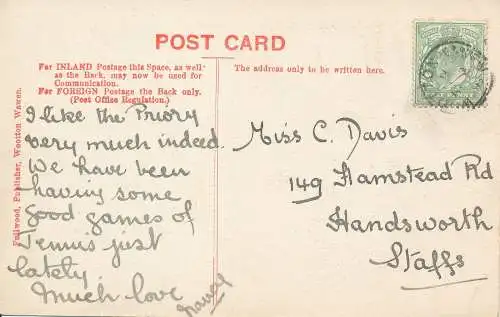 POST CARD
For INLAND Postage this Space, as well
as the Back, may now be used for
Communication.
For FOREIGN Postage the Back only.
(Post Office Regulation.)
The address only to be written here.
Fullwood, Publisher, Wootton Wawen.
I like the Priory
very much indeed.
We have been
having some
good games of
Tennis just
lately.
Much love
Nancy
Miss C. Davis
149 Hamstead Rd
Handsworth
Staffs